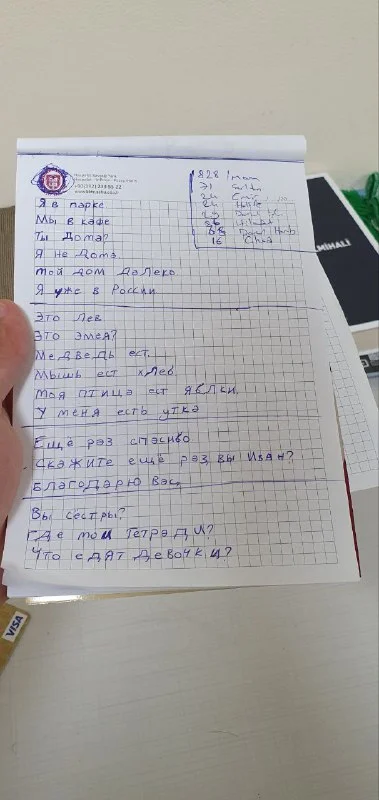 828 Imam
71
24
24
23
26
65
16 Cihad
Я в парке
Мы в кафе
Ты дома?
Я не дома
Мой дом далеко
Я уже в России
Это лев
Это змея?
Медведь ест
Мышь ест хлеб
Моя птица ест яблки
У меня есть утка
Ещё раз спасибо
Скажите ещё раз, вы Иван?
Благодарю вас
Вы сёстры?
Где мои тетради?
Что едят девочки?
MİHALİ
VISA